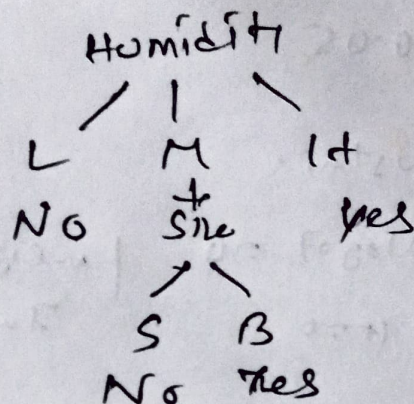 Humidity
L M H
No Size Yes
S B
No Yes